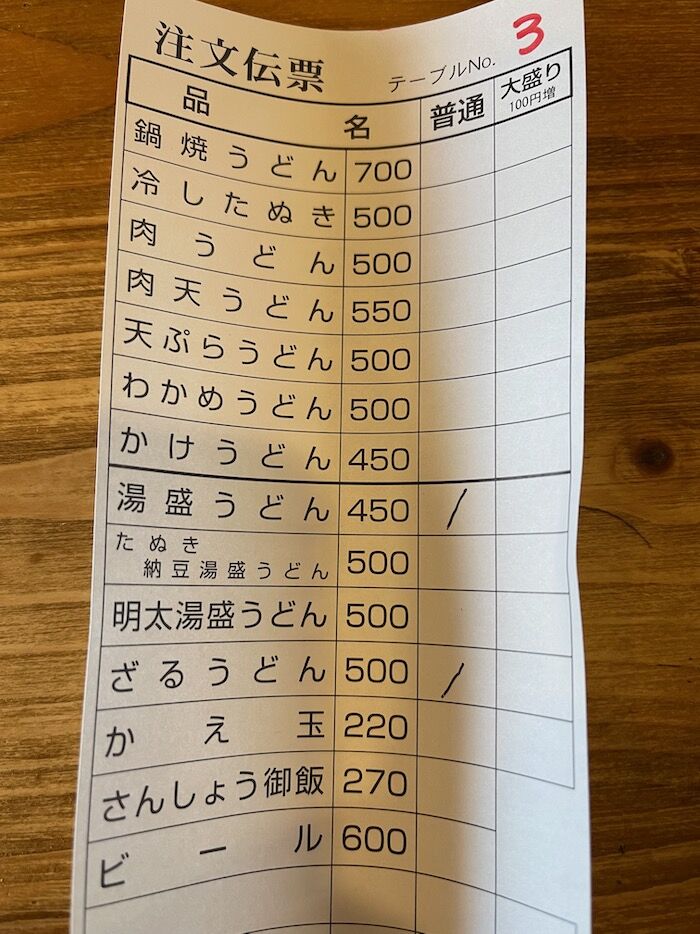 注文伝票 テーブルNo. 3
品名 普通 大盛り
100円増
鍋焼うどん 700
冷したぬき 500
肉うどん 500
肉天うどん 550
天ぷらうどん 500
わかめうどん 500
かけうどん 450
湯盛うどん 450 /
たぬき
納豆湯盛うどん 500
明太湯盛うどん 500
ざるうどん 500 /
かえ玉 220
さんしょう御飯 270
ビール 600